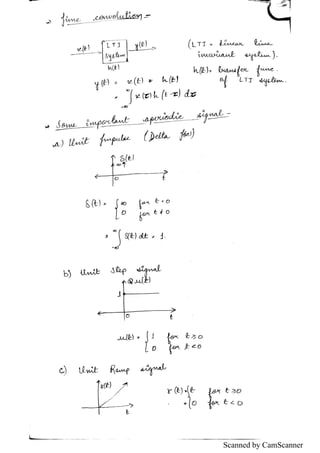 → Time convolution :-
x(t) LTI System y(t)
h(t)
(LTI = Linear time invariant system).
h(t) = transfer func. of LTI system.
y(t) = x(t) * h(t)
= ∞∫-∞ x(τ) h(t-τ) dτ
→ Some important aperiodic signal -
a) Unit Impulse (Delta fn)
δ(t)
∞
0 t
δ(t) = { ∞ for t = 0
0 for t ≠ 0
= ∞∫-∞ δ(t) dt = 1.
b) Unit Step signal
u(t)
1
0 t
u(t) = { 1 for t ≥ 0
0 for t < 0
c) Unit Ramp signal
r(t)
t
r(t) = { t for t ≥ 0
= 0 for t < 0
Scanned by CamScanner